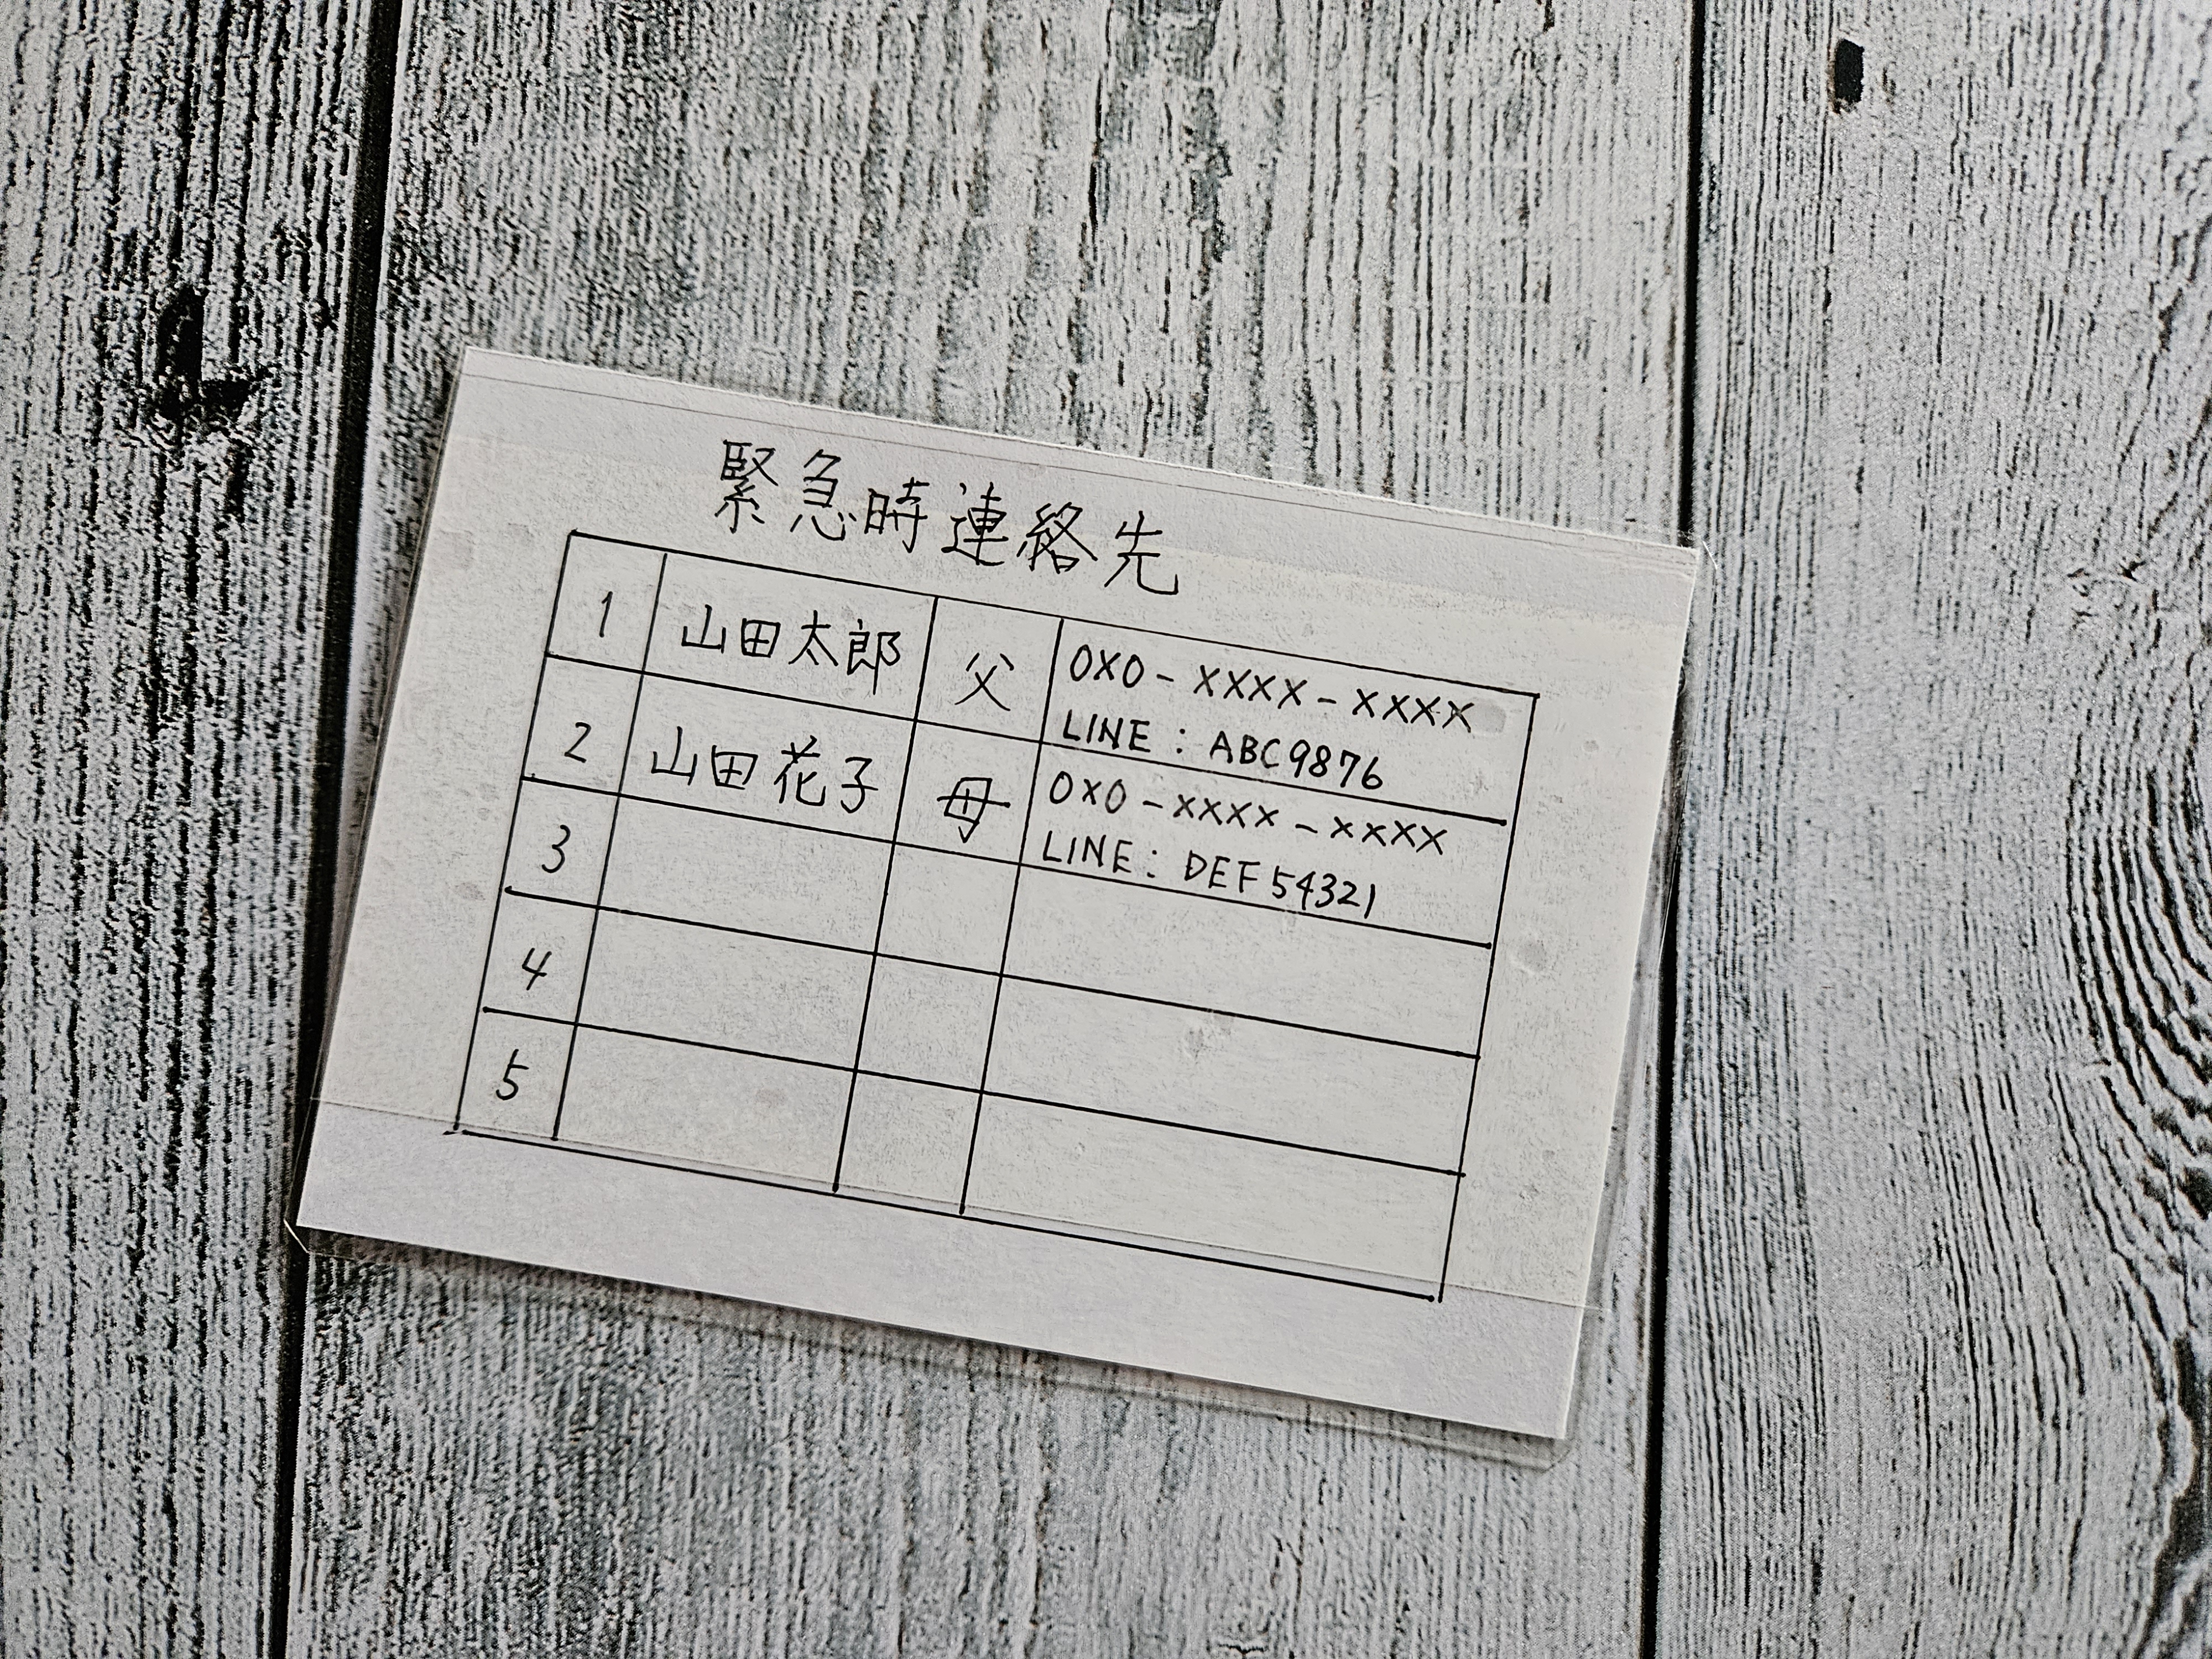 緊急時連絡先
1 山田太郎 父 0X0-XXXX-XXXX
LINE:ABC9876
2 山田花子 母 0X0-XXXX-XXXX
LINE:DEF54321
3
4
5